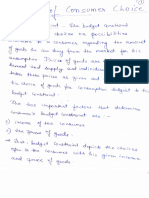 of Consumer Choice
The budget constraint
choice or possibilities
to a consumer regarding the amount
of goods he can buy from the market for his
consumption. Prices of goods are
demand and supply and individual
takes these prices as given and
his choice of goods for consumption subject to his
budget constraint.
The two important factors that determine
consumer's budget constraint are :-
i) Income of the consumer
ii) The prices of goods.
→ budget constraint depicts the choices
open to the consumer with his given income
and prices of goods